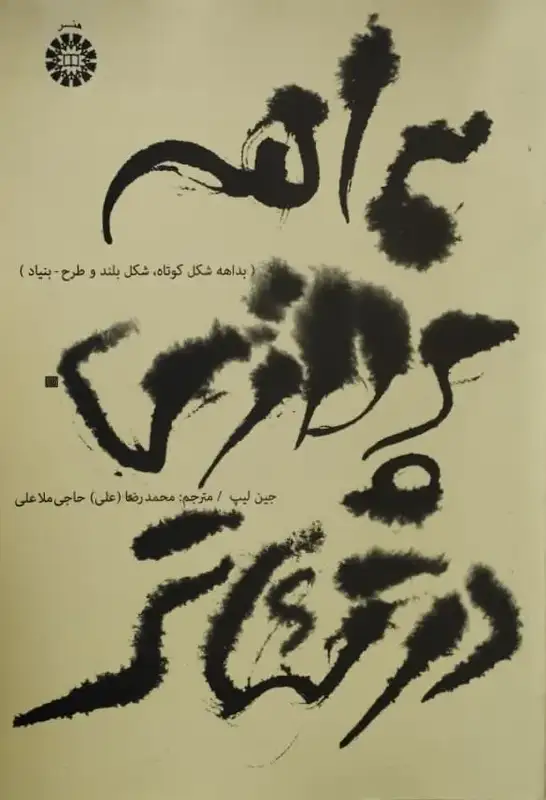 هنر
بداهه
پردازی
در تئاتر
( بداهه شکل کوتاه، شکل بلند و طرح - بنیاد )
جین لیپ / مترجم: محمدرضا (علی) حاجی‌ملاعلی